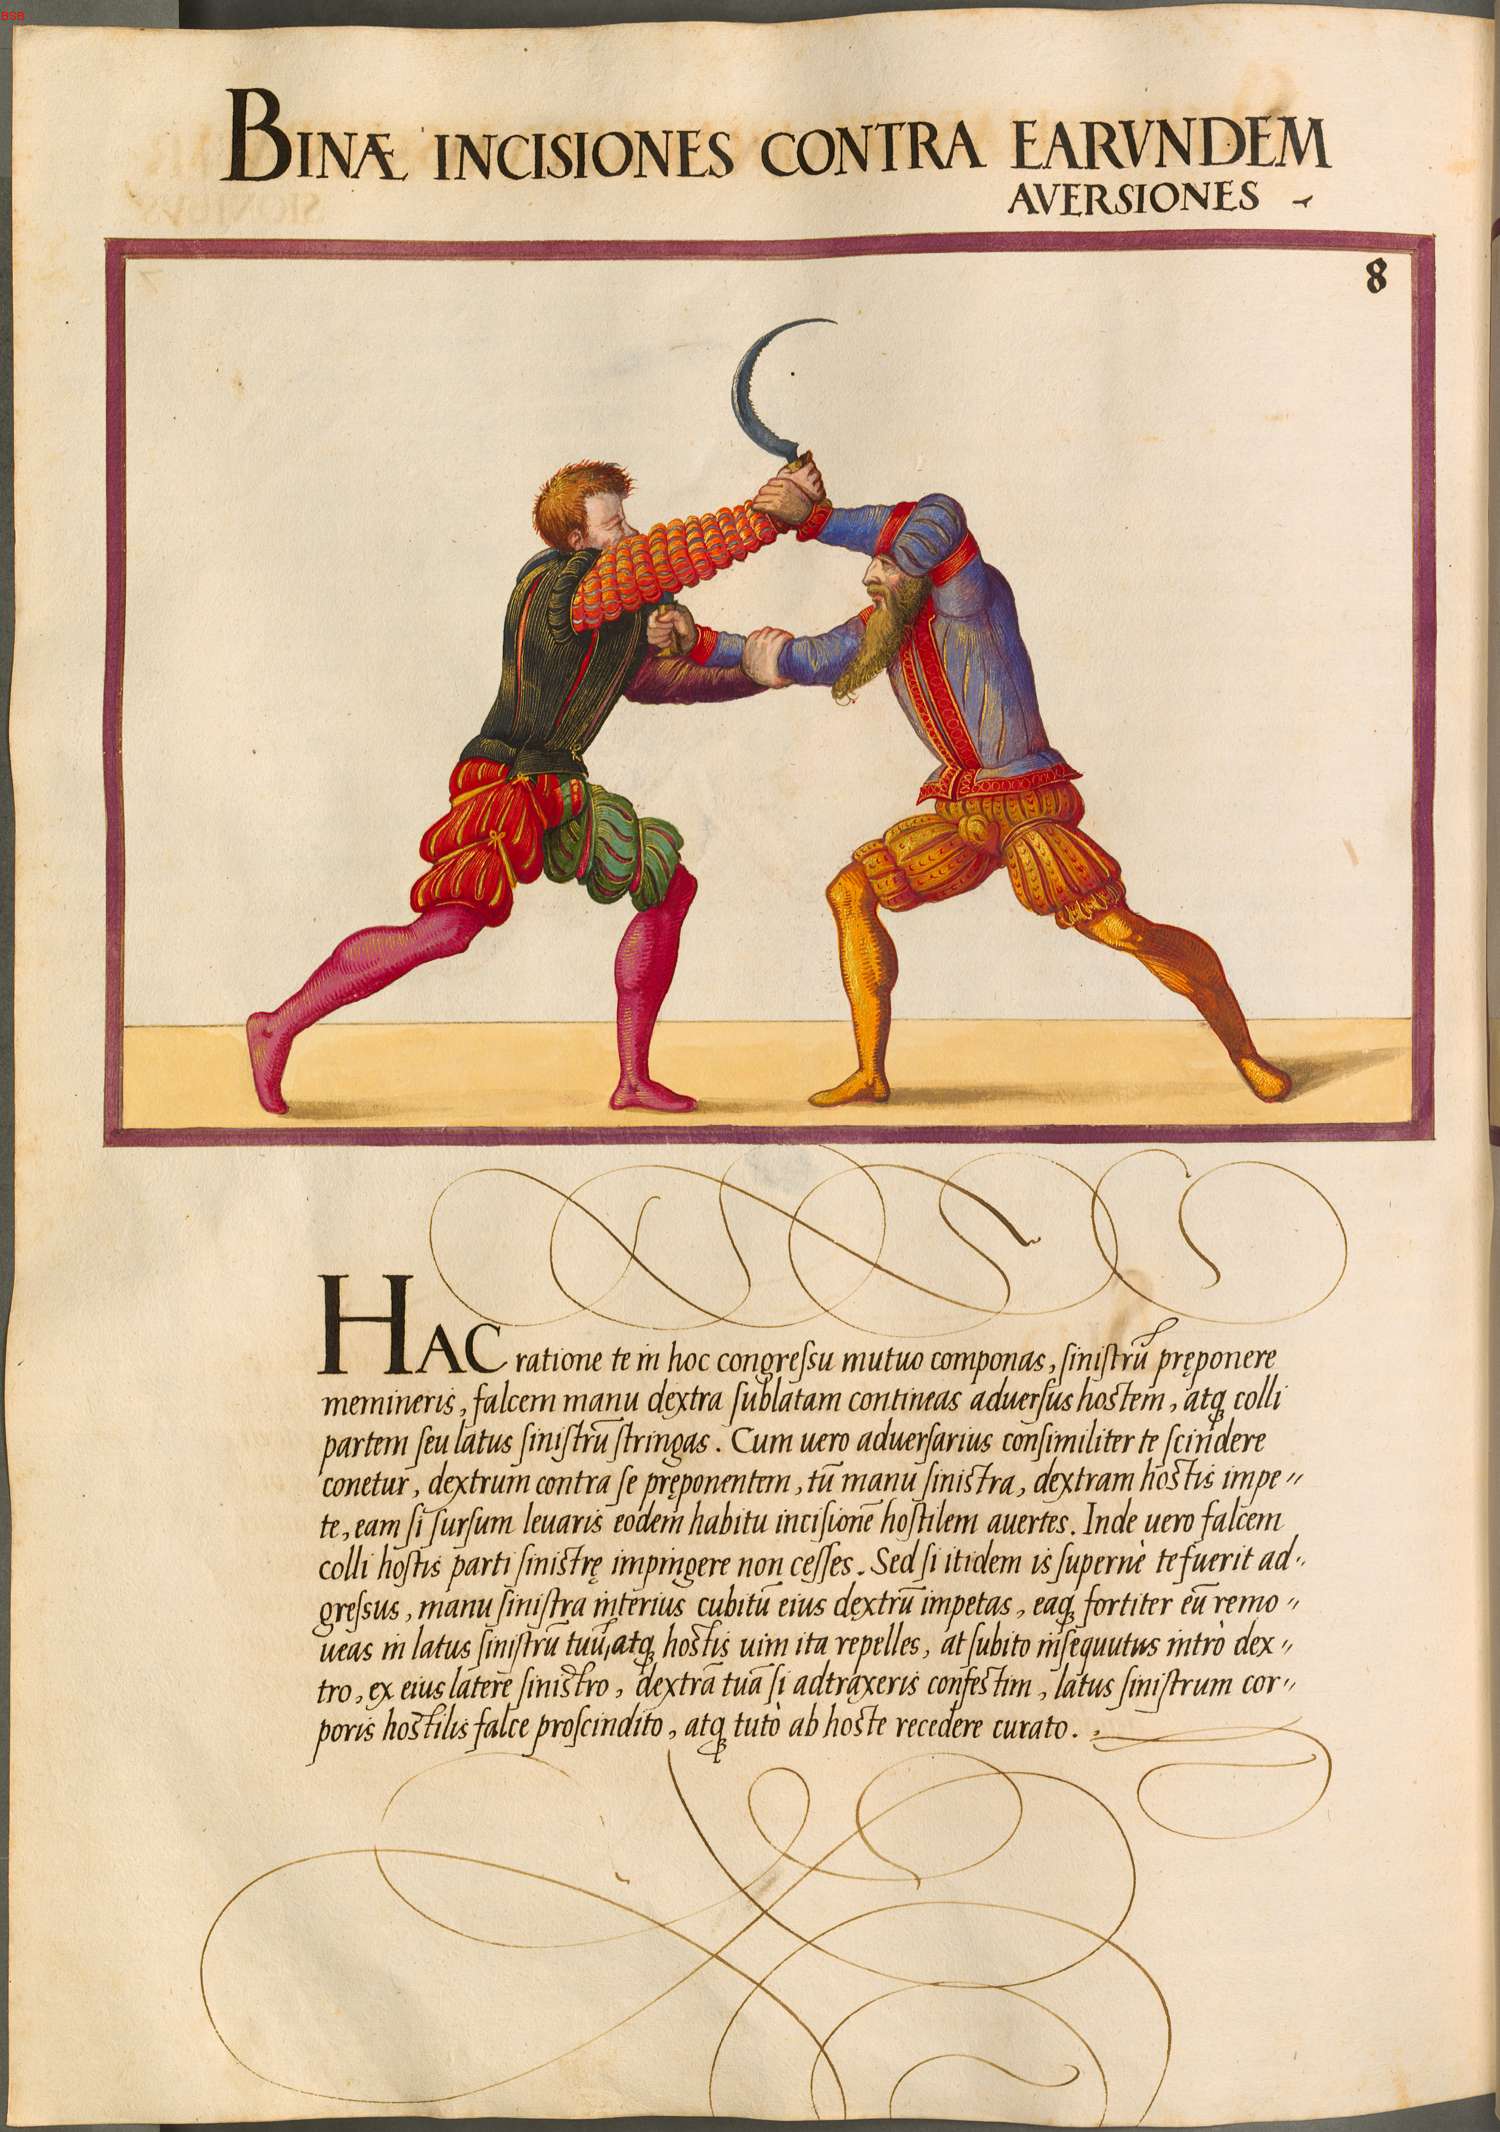 BSB
BINÆ INCISIONES CONTRA EARVNDEM
AVERSIONES
8
HAC ratione te in hoc congreſsu mutuo componas, ſiniſtrũ pręponere
memineris, falcem manu dextra ſublatam contineas aduerſus hostem, atq colli
partem ſeu latus ſiniſtrũ ſtringas. Cum uero aduerſarius conſimiliter te ſcindere
conetur, dextrum contra ſe pręponentem, tũ manu ſinistra, dextram hostis impe〃
te, eam ſi ſurſum leuaris eodem habitu inciſionẽ hoſtilem auertes. Inde uero falcem
colli hoſtis parti ſinistrę impingere non ceſſes. Sed ſi itidem is ſupernè te fuerit ad〃
greſsus, manu ſiniſtra interius cubitũ eius dextrũ impetas, eaq fortiter eũ remo〃
ueas in latus ſiniſtrũ tuũ, atq hostis uim ita repelles, at ſubito inſequutus intrò dex〃
tro, ex eius latere ſinistro, dextrã tuã ſi adtraxeris confestim, latus ſiniſtrum cor〃
poris hostilis falce proſcindito, atq tutò ab hoste recedere curato.